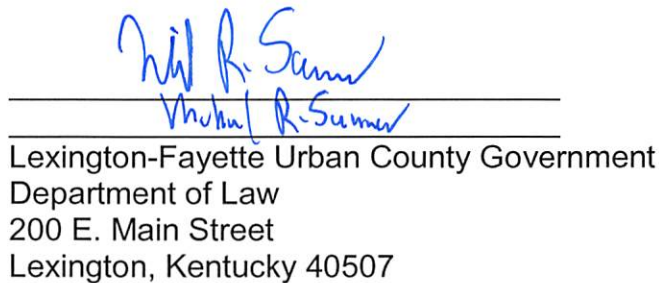 R. S
Michael R. Sumner
Lexington-Fayette Urban County Government
Department of Law
200 E. Main Street
Lexington, Kentucky 40507